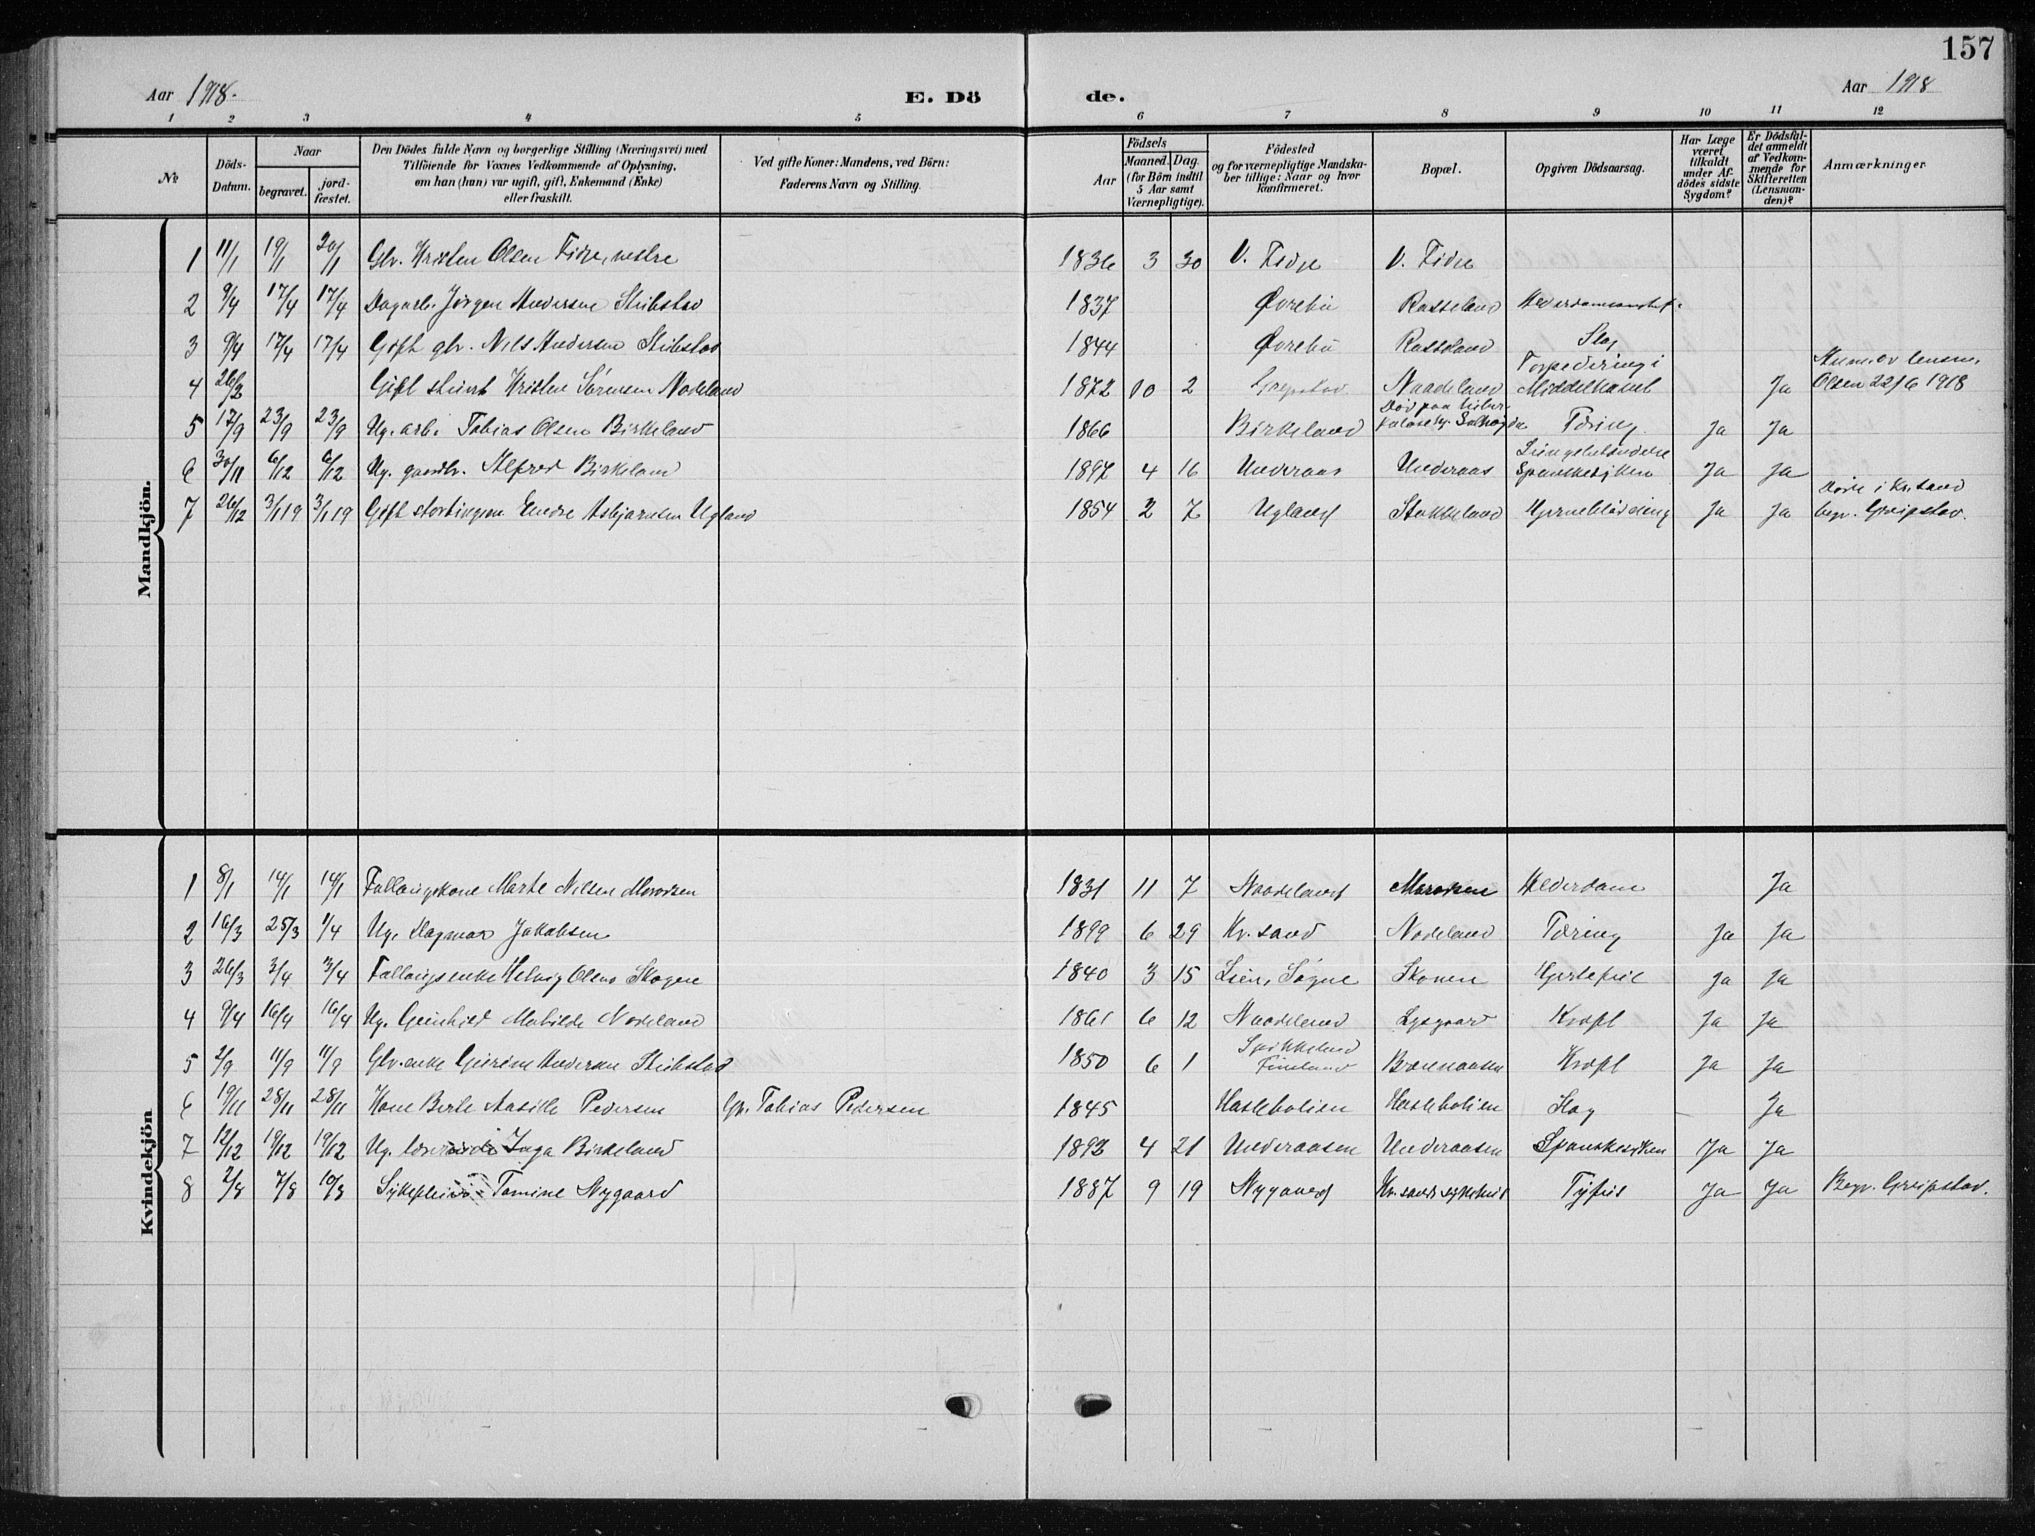 157
Aar 1918.
E. Dö
de.
Aar 1918
1 2 3 4 5 6 7 8 9 10 11 12
No
Döds-Datum.
Naar
begravet.
jord-fæstet.
Den Dödes fulde Navn og borgerlige Stilling (Næringsvei) med
Tilföiende for Voxnes Vedkommende af Oplysning,
om han (hun) var ugift, gift, Enkemand (Enke)
eller fraskilt.
Ved gifte Koner: Mandens, ved Börn:
Faderens Navn og Stilling.
Aar
Födsels
Maaned. Dag.
(for Börn indtil
5 Aar samt
Værnepligtige).
Födested
og for værnepligtige Mandska-
ber tillige: Naar og hvor
konfirmeret.
Bopæl.
Opgiven Dödsaarsag.
Har Læge
været
tilkaldt
under Af-
dödes sidste
Sygdom?
Er Dödsfal-
det anmeldt
af Vedkom-
mende for
Skifteretten
(Lensman-
den)?
Anmærkninger.
Mandkjön.
1 11/1 19/1 20/1 Glv. Kristen Olsen Fidje, vestre 1836 3 30 V. Fidje V. Fidje
2 9/4 17/4 17/4 Dagarb. Jörgen Andersen Stibstad 1837 Øvrebö Rosseland
3 9/4 17/4 17/4 Gift glv. Nils Andersen Stibstad 1844 Øvrebö Rosseland Slag
4 26/2 Gift Kristen Sørensen Nodeland 1872 10 2 Greipstad Naadeland Torpedering i Middelhavet Ja Anm. av lensm. Olsen 22/6 1918
5 17/9 23/9 23/9 Ug. arb. Tobias Olsen Birkeland 1866 Birkeland Død paa Tæring Ja Ja
6 30/11 6/12 6/12 Ug. gaardbr. Alfred Birkeland 1897 4 16 Underaas Underaas Spanskesyken Ja Ja
7 26/12 3/1 19 3/1 19 Gift stortingsm. Endre Asbjørnsen Ugland 1854 2 7 Ugland Stokkeland Hjerneblødning Ja Ja Døde i Kr.sand begr. Greipstad.
Kvindekjön
1 8/1 14/1 14/1 Fattigkone Marte Nilsen 1831 11 7 Naadeland Alderdom Ja
2 16/3 25/3 1/4 Ug. Dagmar Jakobsen 1899 6 29 Kr.sand Nodeland Tæring Ja Ja
3 26/3 3/4 3/4 Fattigenke Helvig Olsen Skogen 1840 3 15 Lien, Søgne Skoven Hjertefeil Ja Ja
4 9/4 16/4 16/4 Ug. Gunhild Mathilde Nodeland 1861 6 12 Naadeland Lysgaard Kræft Ja Ja
5 2/9 11/9 11/9 Glv. enke Andersen Stibstad 1850 6 1 Finsland Kræft Ja Ja
6 19/11 28/11 28/11 Kone Berte Aasille Pedersen Gv. Tobias Pedersen 1845 Hasleholien Hasleholien Slag - Ja
7 12/12 19/12 19/12 Ug. Inga Birkeland 1892 4 21 Underaasen Underaasen Spanskesyken Ja Ja
8 2/8 7/8 10/8 Sykepleier Tomine Nygaard 1887 9 19 Nygaard Kr.sands sykehus Tyfus Ja Ja Begr. Greipstad.